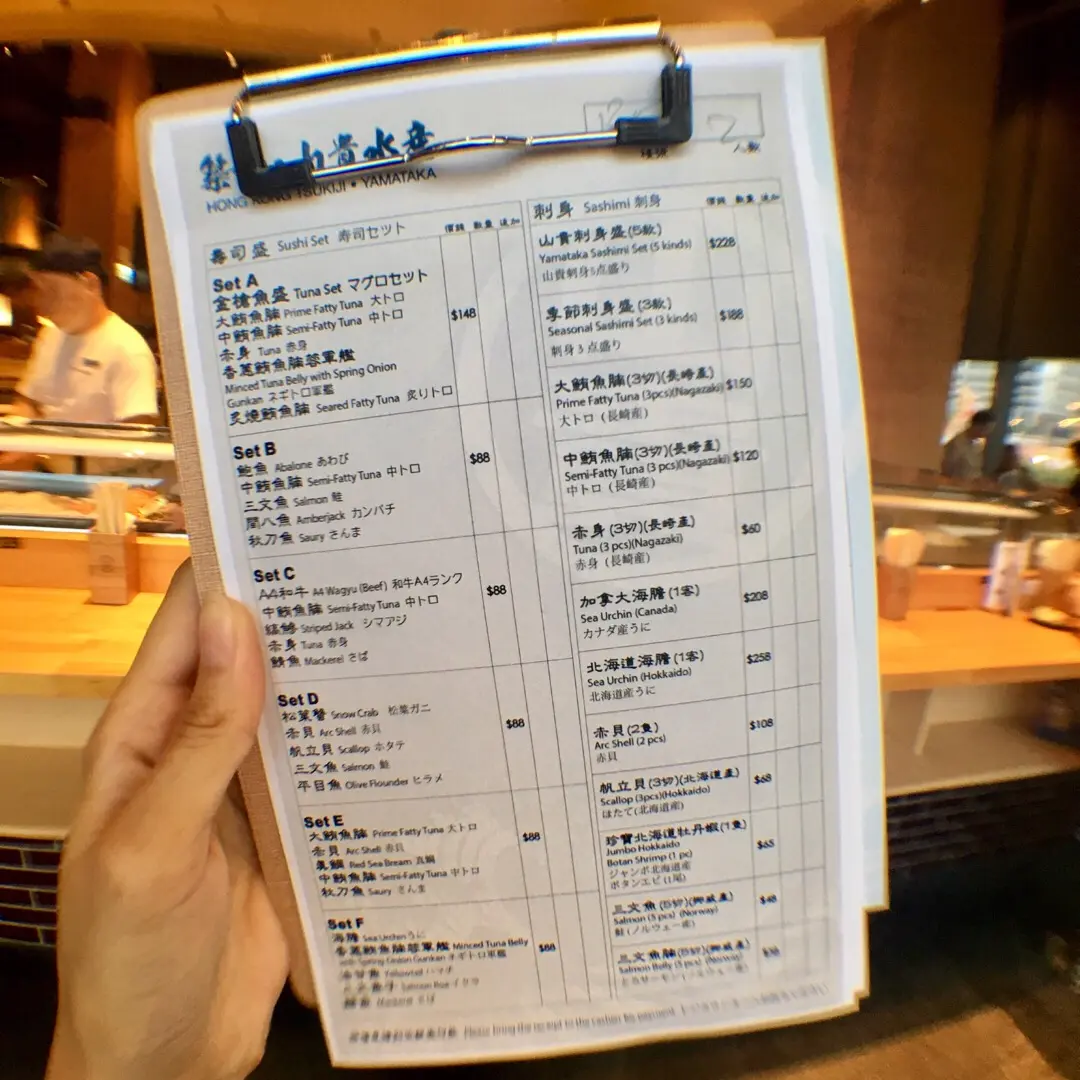 築 山貴水産
HONG KONG TSUKIJI • YAMATAKA
2
檯號 人數
壽司盛 Sushi Set 寿司セット 價錢 數量 追加
Set A
金槍魚盛 Tuna Set マグロセット
大鮪魚腩 Prime Fatty Tuna 大トロ
中鮪魚腩 Semi-Fatty Tuna 中トロ
赤身 Tuna 赤身
香蔥鮪魚腩蓉軍艦
Minced Tuna Belly with Spring Onion
Gunkan ネギトロ軍艦
炙燒鮪魚腩 Seared Fatty Tuna 炙りトロ
$148
Set B
鮑魚 Abalone あわび
中鮪魚腩 Semi-Fatty Tuna 中トロ
三文魚 Salmon 鮭
間八魚 Amberjack カンパチ
秋刀魚 Saury さんま
$88
Set C
A4和牛 A4 Wagyu (Beef) 和牛A4ランク
中鮪魚腩 Semi-Fatty Tuna 中トロ
縞鰺 Striped Jack シマアジ
赤身 Tuna 赤身
鯖魚 Mackerel さば
$88
Set D
松葉蟹 Snow Crab 松葉ガニ
赤貝 Arc Shell 赤貝
帆立貝 Scallop ホタテ
三文魚 Salmon 鮭
平目魚 Olive Flounder ヒラメ
$88
Set E
大鮪魚腩 Prime Fatty Tuna 大トロ
赤貝 Arc Shell 赤貝
真鯛 Red Sea Bream 真鯛
中鮪魚腩 Semi-Fatty Tuna 中トロ
秋刀魚 Saury さんま
$88
Set F
海膽 Sea Urchin うに
香蔥鮪魚腩蓉軍艦 Minced Tuna Belly
with Spring Onion Gunkan ネギトロ軍艦
油甘魚 Yellowtail ハマチ
三文魚子 Salmon Roe イクラ
鯖魚 Mackerel さば
$88
刺身 Sashimi 刺身 價錢 數量 追加
山貴刺身盛(5款)
Yamataka Sashimi Set (5 kinds)
山貴刺身5点盛り
$228
季節刺身盛(3款)
Seasonal Sashimi Set (3 kinds)
刺身3点盛り
$188
大鮪魚腩(3切)(長崎產)
Prime Fatty Tuna (3pcs)(Nagazaki)
大トロ (長崎産)
$150
中鮪魚腩(3切)(長崎產)
Semi-Fatty Tuna (3 pcs)(Nagazaki)
中トロ (長崎産)
$120
赤身(3切)(長崎產)
Tuna (3 pcs)(Nagazaki)
赤身 (長崎産)
$60
加拿大海膽(1客)
Sea Urchin (Canada)
カナダ産うに
$208
北海道海膽(1客)
Sea Urchin (Hokkaido)
北海道産うに
$258
赤貝(2隻)
Arc Shell (2 pcs)
赤貝
$108
帆立貝(3切)(北海道產)
Scallop (3pcs)(Hokkaido)
ほたて(北海道産)
$68
珍寶北海道牡丹蝦(1隻)
Jumbo Hokkaido
Botan Shrimp (1 pc)
ジャンボ北海道産
ボタンエビ (1尾)
$65
三文魚(5切)(挪威產)
Salmon (5 pcs) (Norway)
鮭 (ノルウェー産)
$48
三文魚腩(5切)(挪威產)
Salmon Belly (5 pcs) (Norway)
Please bring the receipt to the cashier for payment